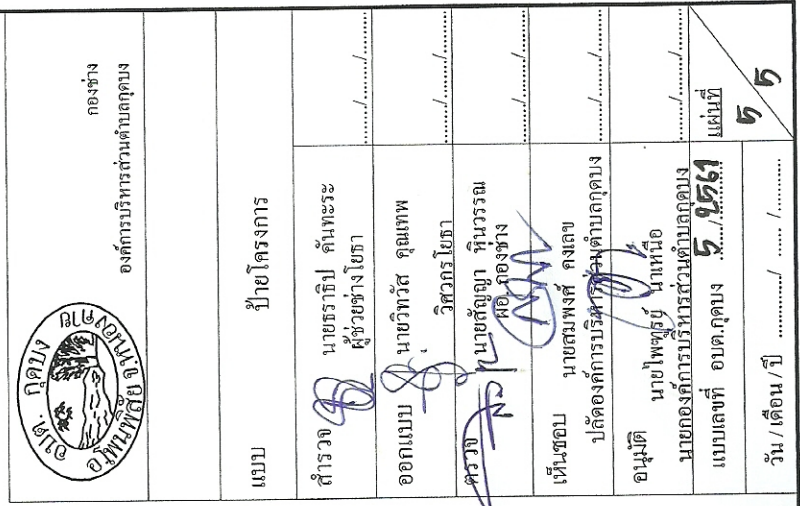 อบต. กุดบง
อ.โพนพิสัย จ.หนองคาย
กองช่าง
องค์การบริหารส่วนตำบลกุดบง
แบบ ป้ายโครงการ
สำรวจ นายธราธิป คันทะระ ......../......../........
ผู้ช่วยช่างโยธา
ออกแบบ นายวิทวัส คุณเทพ ......../......../........
วิศวกรโยธา
ตรวจ นายสัญญา หุ่นวรรณ ......../......../........
ผอ.กองช่าง
เห็นชอบ นายสมพงศ์ คงเลข ......../......../........
ปลัดองค์การบริหารส่วนตำบลกุดบง
อนุมัติ นายไพฑูรย์ นาเหนือ ......../......../........
นายกองค์การบริหารส่วนตำบลกุดบง
แบบเลขที่ อบต.กุดบง 5 / 2561 แผ่นที่
5 5
วัน / เดือน / ปี ............/ ....... / ..........